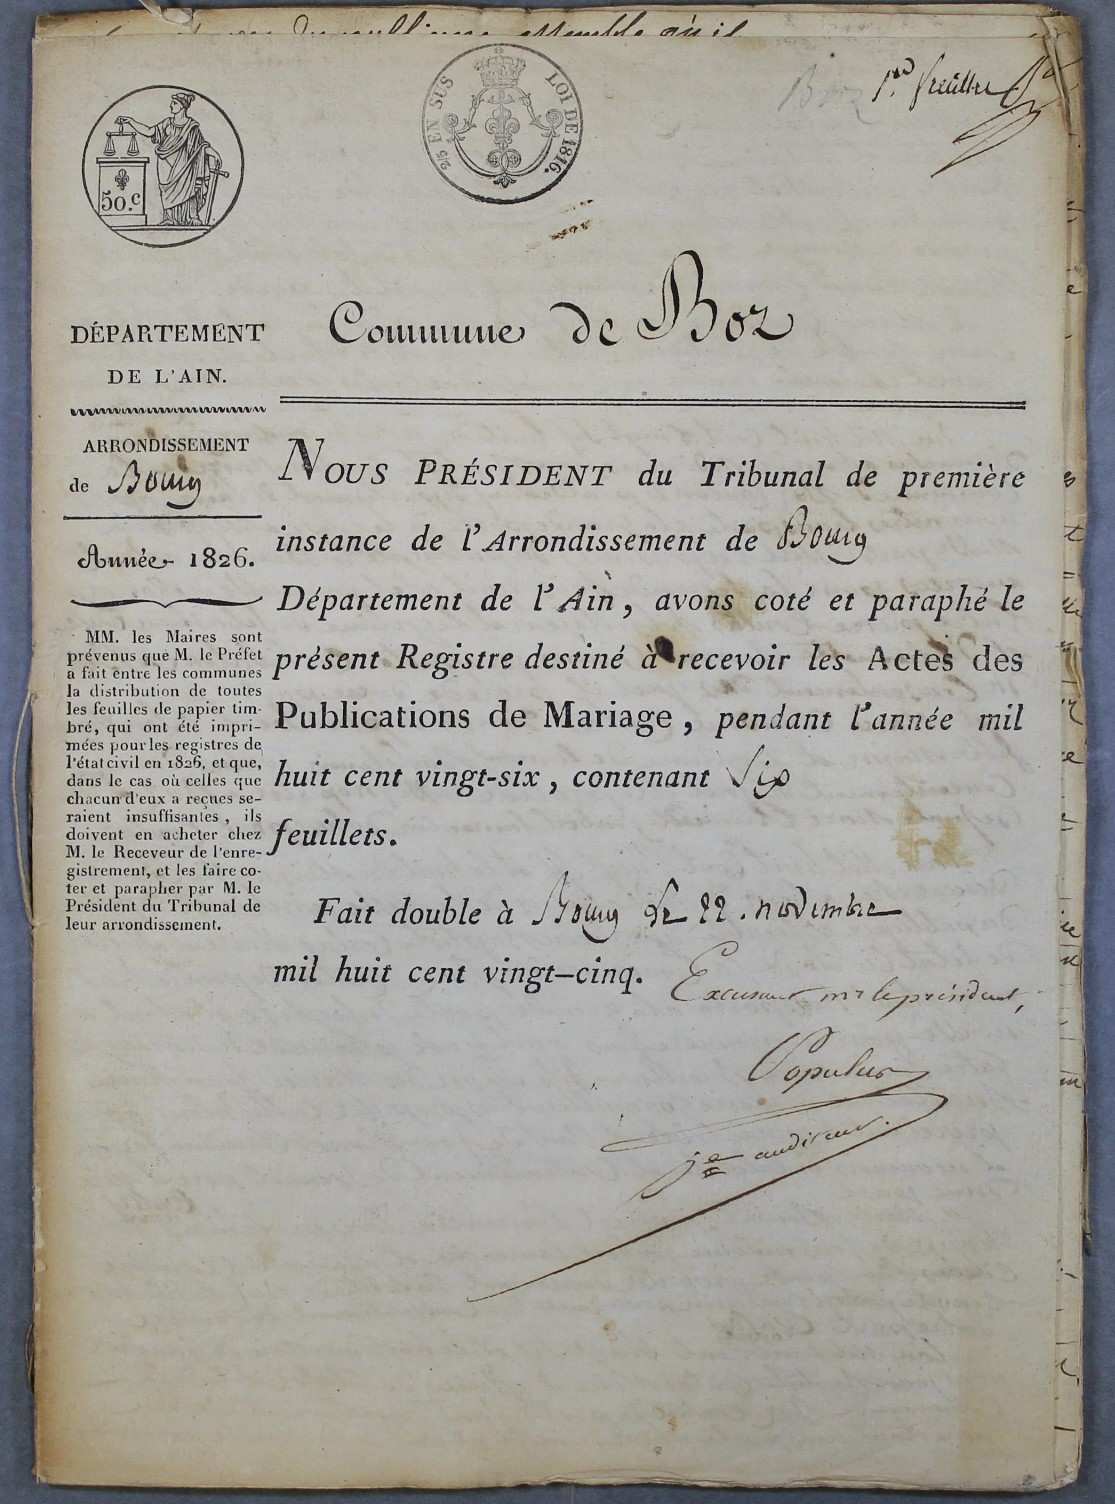 2/5 EN SUS
LOI DE 1816.
50.c
Boz
1er feuillet
Commune de Boz
DÉPARTEMENT
DE L'AIN.
ARRONDISSEMENT
de Bourg
Année 1826.
MM. les Maires sont
prévenus que M. le Préfet
a fait entre les communes
la distribution de toutes
les feuilles de papier tim-
bré, qui ont été impri-
mées pour les registres de
l'état civil en 1826, et que,
dans le cas où celles que
chacun d'eux a reçues se-
raient insuffisantes, ils
doivent en acheter chez
M. le Receveur de l'enre-
gistrement, et les faire co-
ter et parapher par M. le
Président du Tribunal de
leur arrondissement.
NOUS PRÉSIDENT du Tribunal de première
instance de l'Arrondissement de Bourg
Département de l'Ain, avons coté et paraphé le
présent Registre destiné à recevoir les Actes des
Publications de Mariage, pendant l'année mil
huit cent vingt-six, contenant Six
feuillets.
Fait double à Bourg le 22. novembre
mil huit cent vingt-cinq.
Excusant mr le président,
Populus
je auditeur.